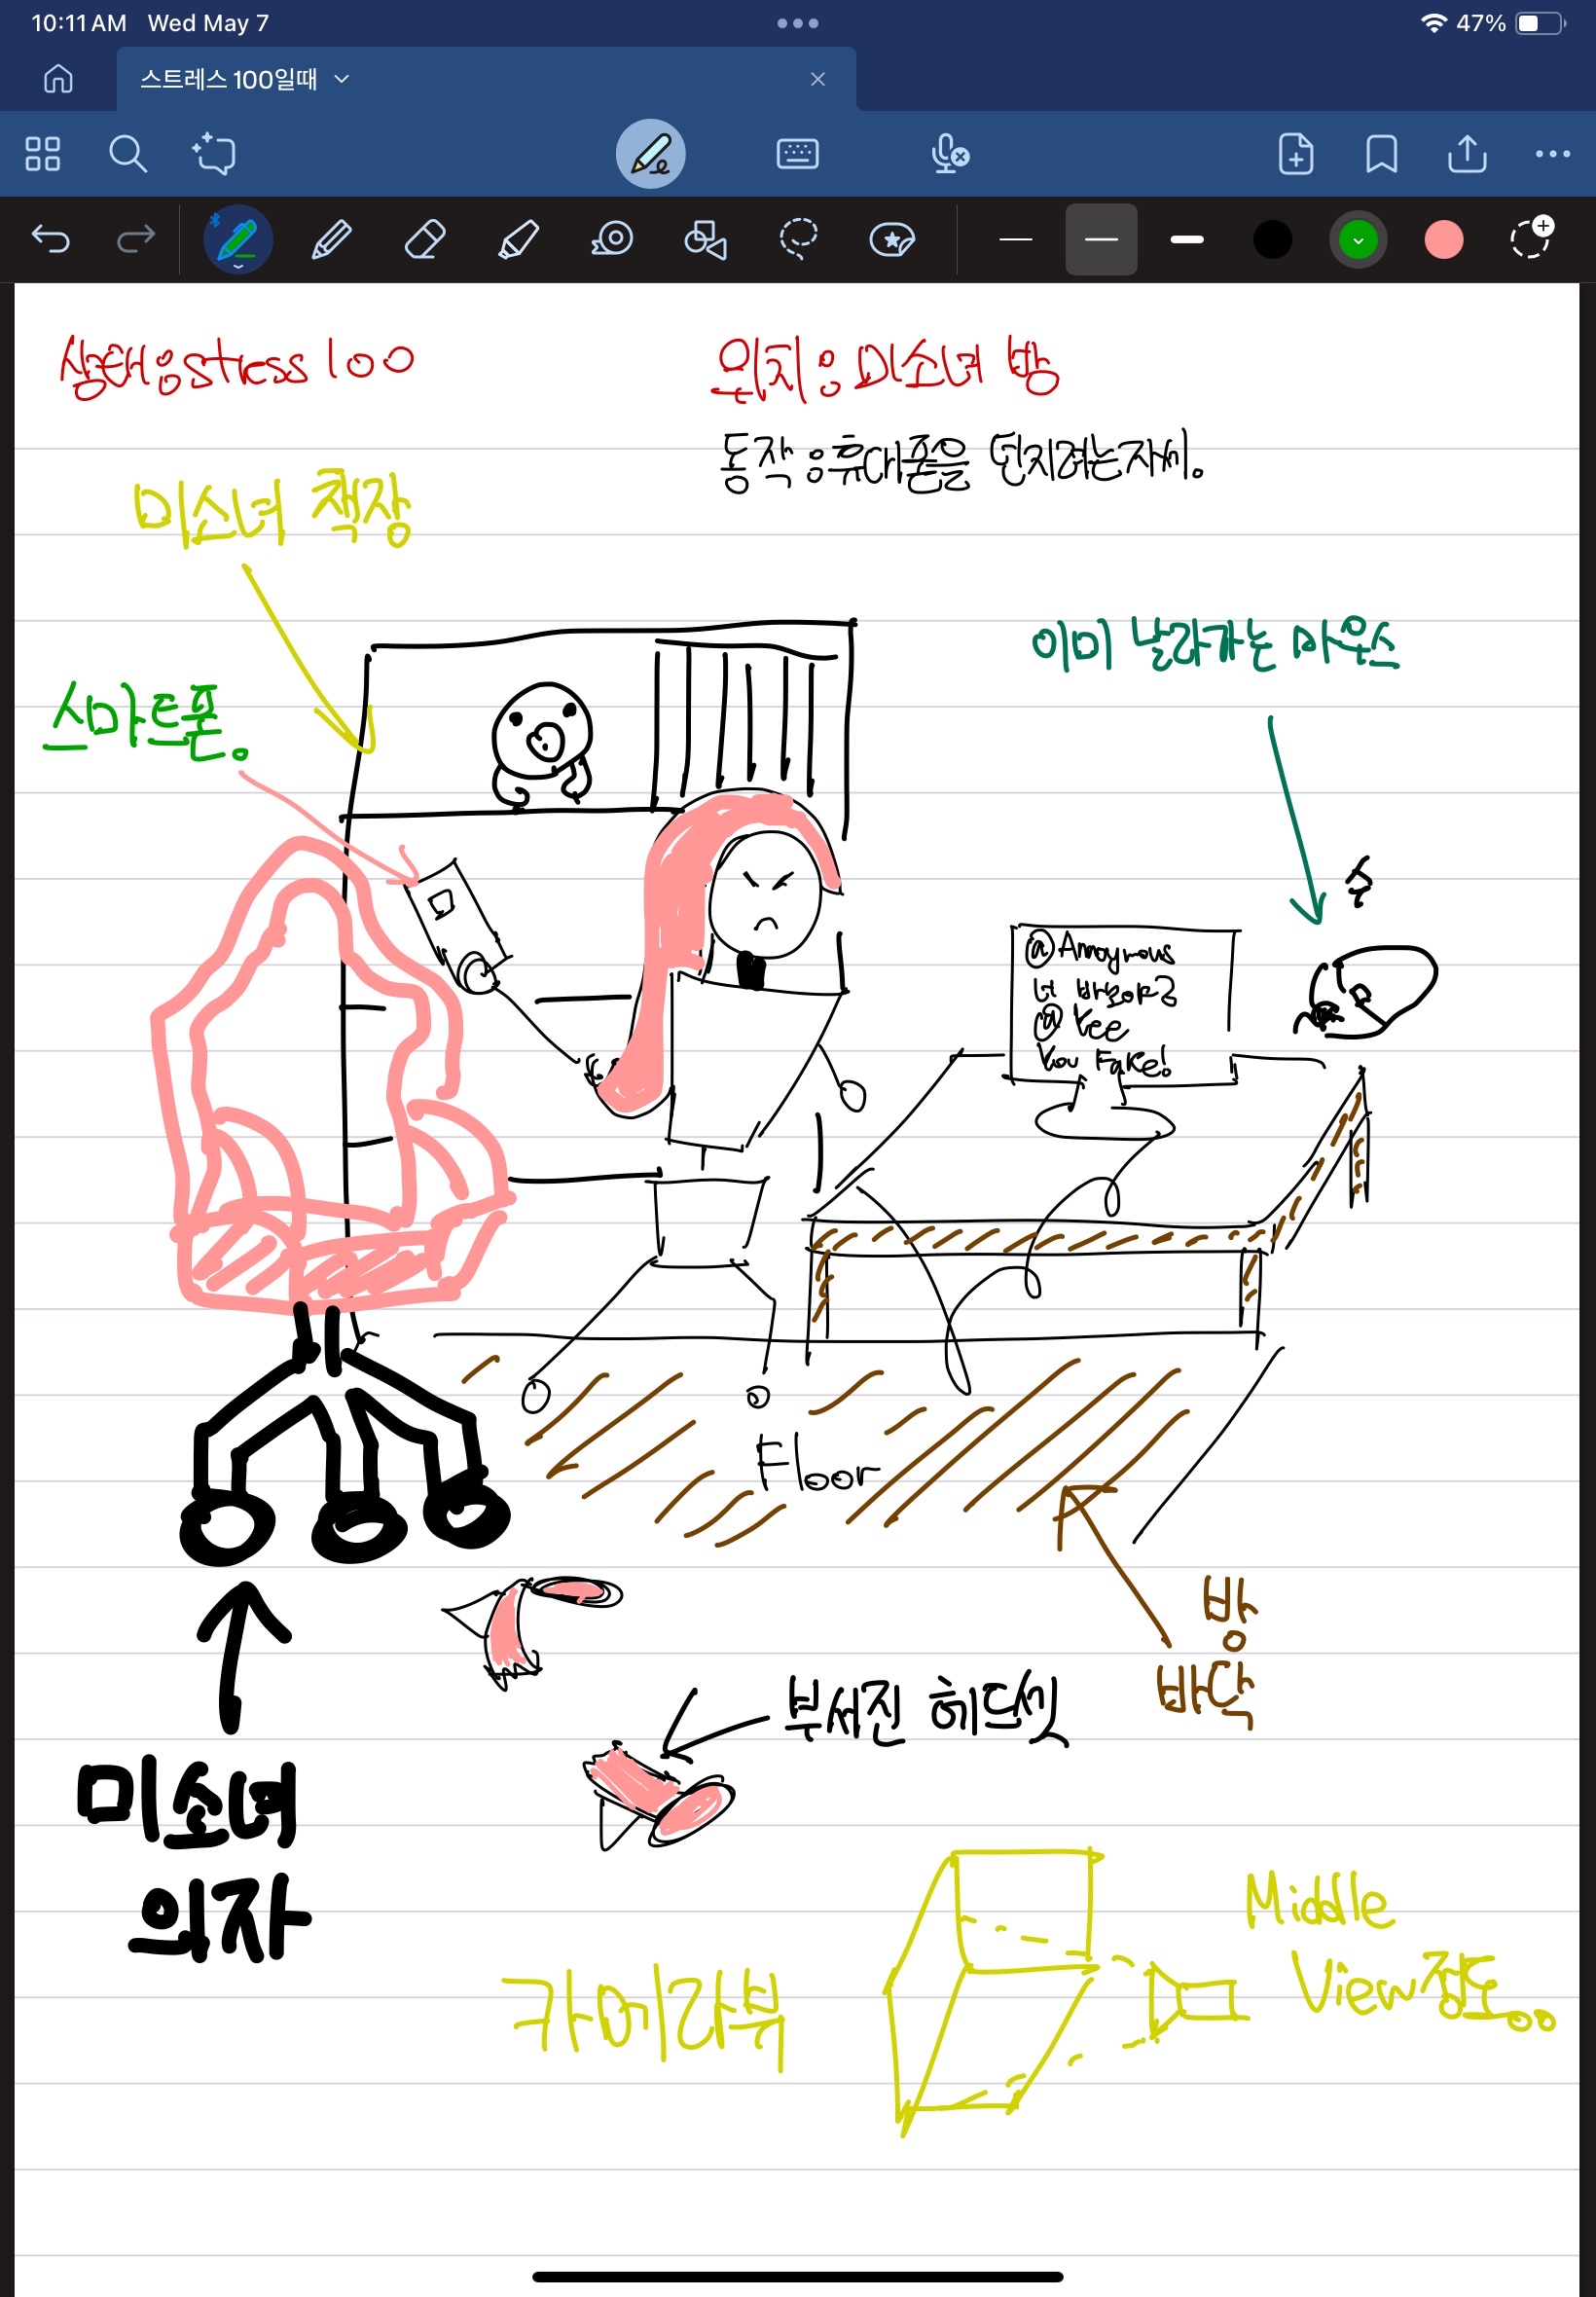 10:11 AM Wed May 7
47%
스트레스 100일때
상태: stress 100
위치: 미소녀 방
동작: 휴대폰을 던지려는 자세.
미소녀 책장
이미 날라가는 마우스
스마트폰.
슝
@ Anoymous
너 바보야?
@ Vee
You Fake!
Floor
방
바닥
부서진 헤드셋
미소녀
의자
카메라뷰
Middle
View 정도..